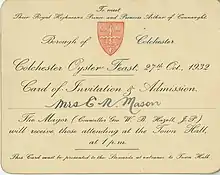 To meet
Their Royal Highnesses Prince and Princess Arthur of Connaught.
Borough of Colchester.
Colchester Oyster Feast, 27th Oct, 1932
Card of Invitation & Admission.
Mrs E. N. Mason
The Mayor (Councillor Geo. W. B. Hazell, J.P.)
will receive those attending at the Town Hall,
at 1 p.m.
This Card must be presented to the Attendants at entrance to Town Hall.